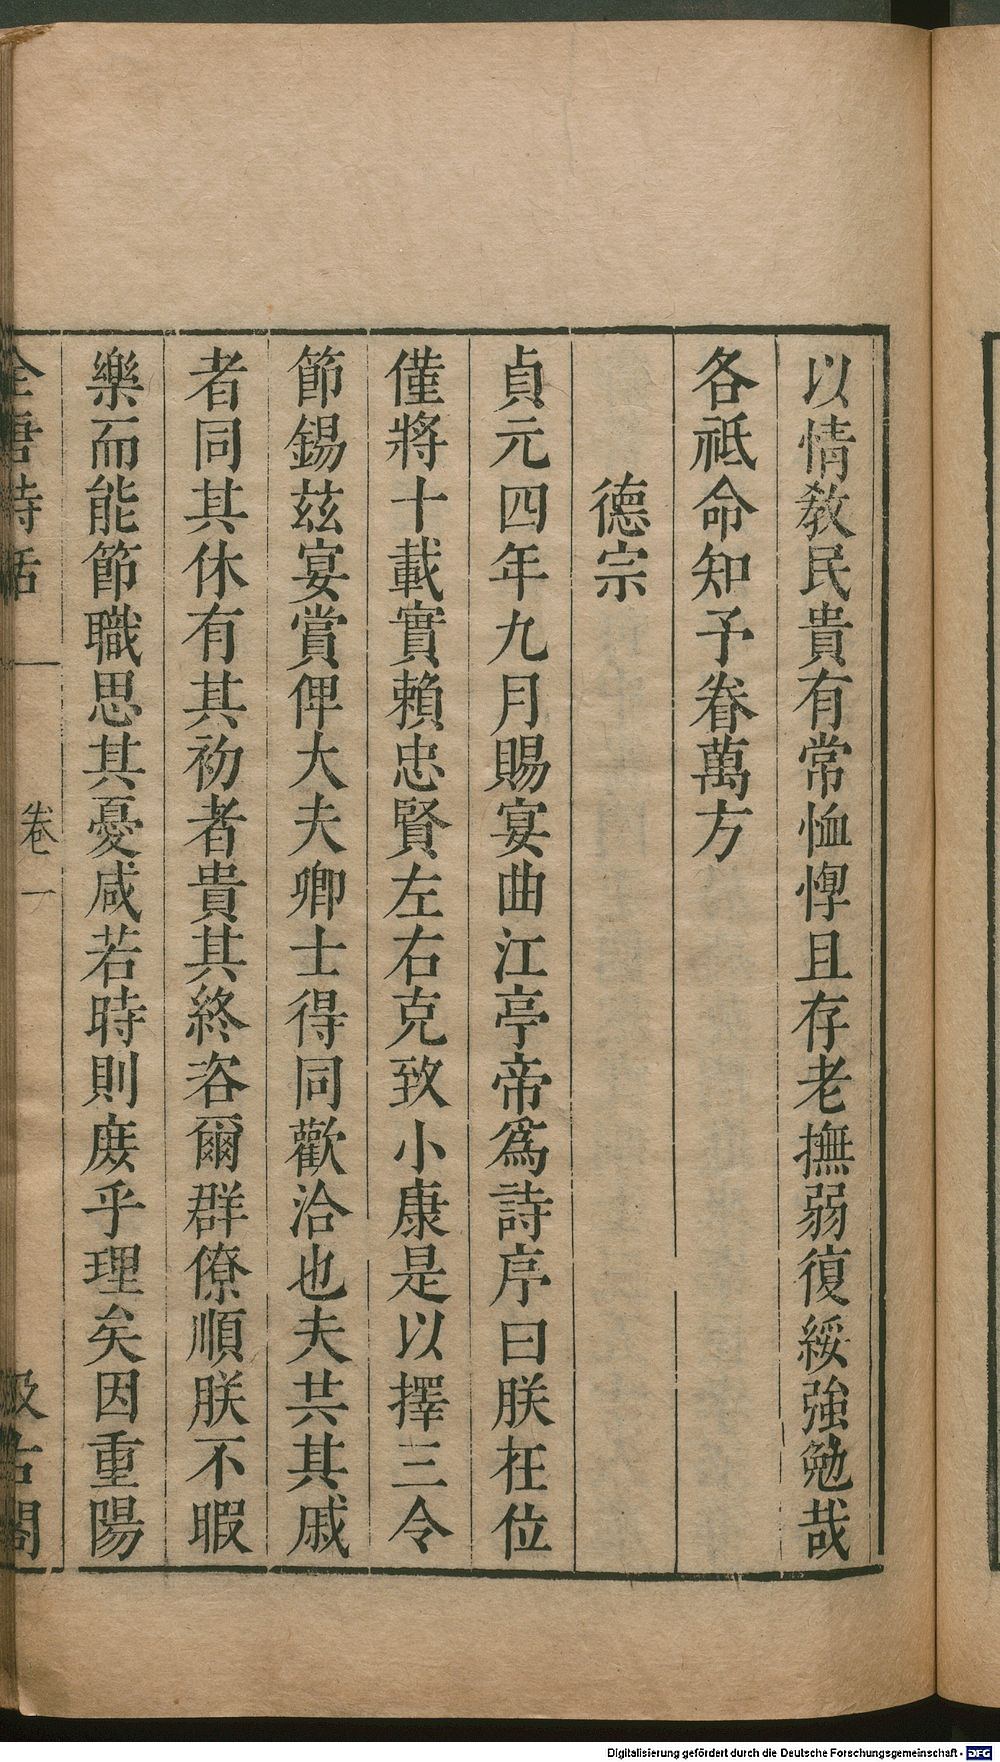 以情教民貴有常恤惸且存老撫弱復綏強勉哉
各祗命知予眷萬方
德宗
貞元四年九月賜宴曲江亭帝爲詩序曰朕在位
僅將十載實賴忠賢左右克致小康是以擇三令
節錫茲宴賞俾大夫卿士得同歡洽也夫共其戚
者同其休有其初者貴其終咨爾群僚順朕不暇
樂而能節職思其憂咸若時則庶乎理矣因重陽
全唐詩話 卷一 汲古閣
Digitalisierung gefördert durch die Deutsche Forschungsgemeinschaft - DFG